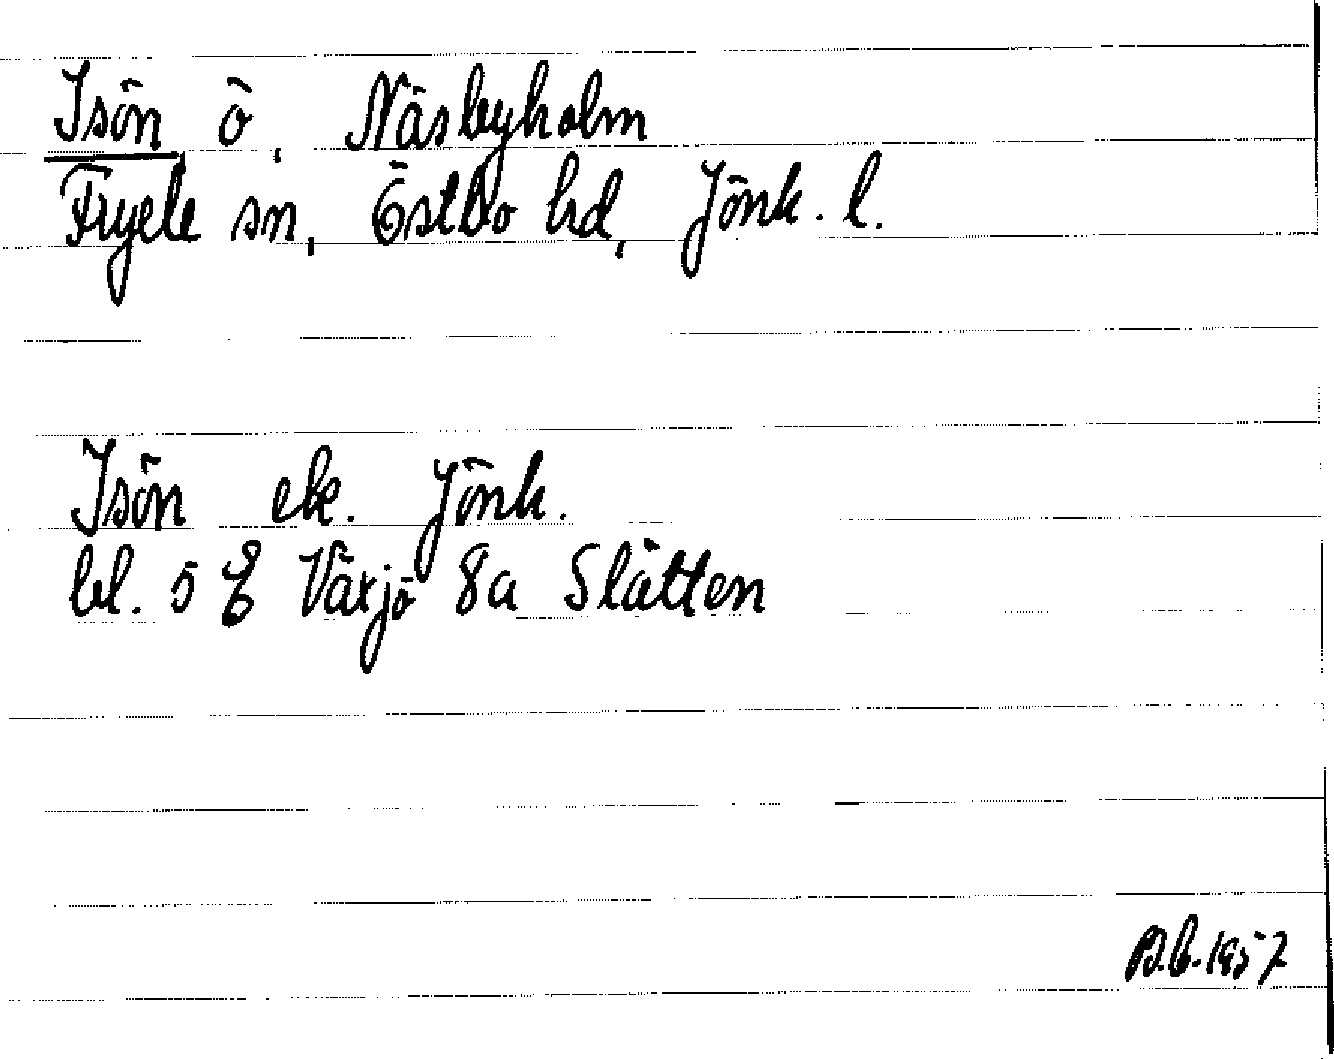 Isön ö, Näsbyholm
Fryele sn, Östbo hd, Jönk. l.
Isön ek. Jönk.
bl. 5 E Växjö 8a Slätten
B.b. 1957